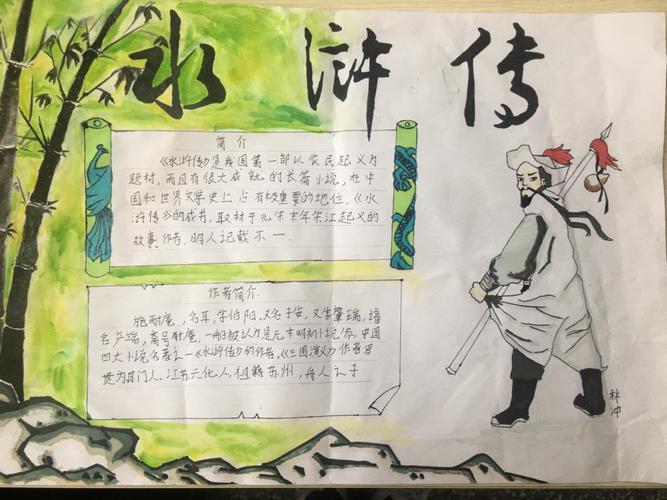 水浒传
简介
《水浒传》是我国第一部以农民起义为
题材,而且有很大成就的长篇小说,在中
国和世界文学史上占有极重要的地位,《水
浒传》的成书,取材于北宋末年宋江起义的
故事作者,明人记载不一.
作者简介
施耐庵,名耳,字伯阳,又名子安,又字肇瑞,
名产端,寓号耐庵,一般被认为是元末明初小说家,中国
四大小说名著之一《水浒传》的作者,《三国演义》作者罗
贯为其门人.江苏兴化人,祖籍苏州,舟人之子
林冲